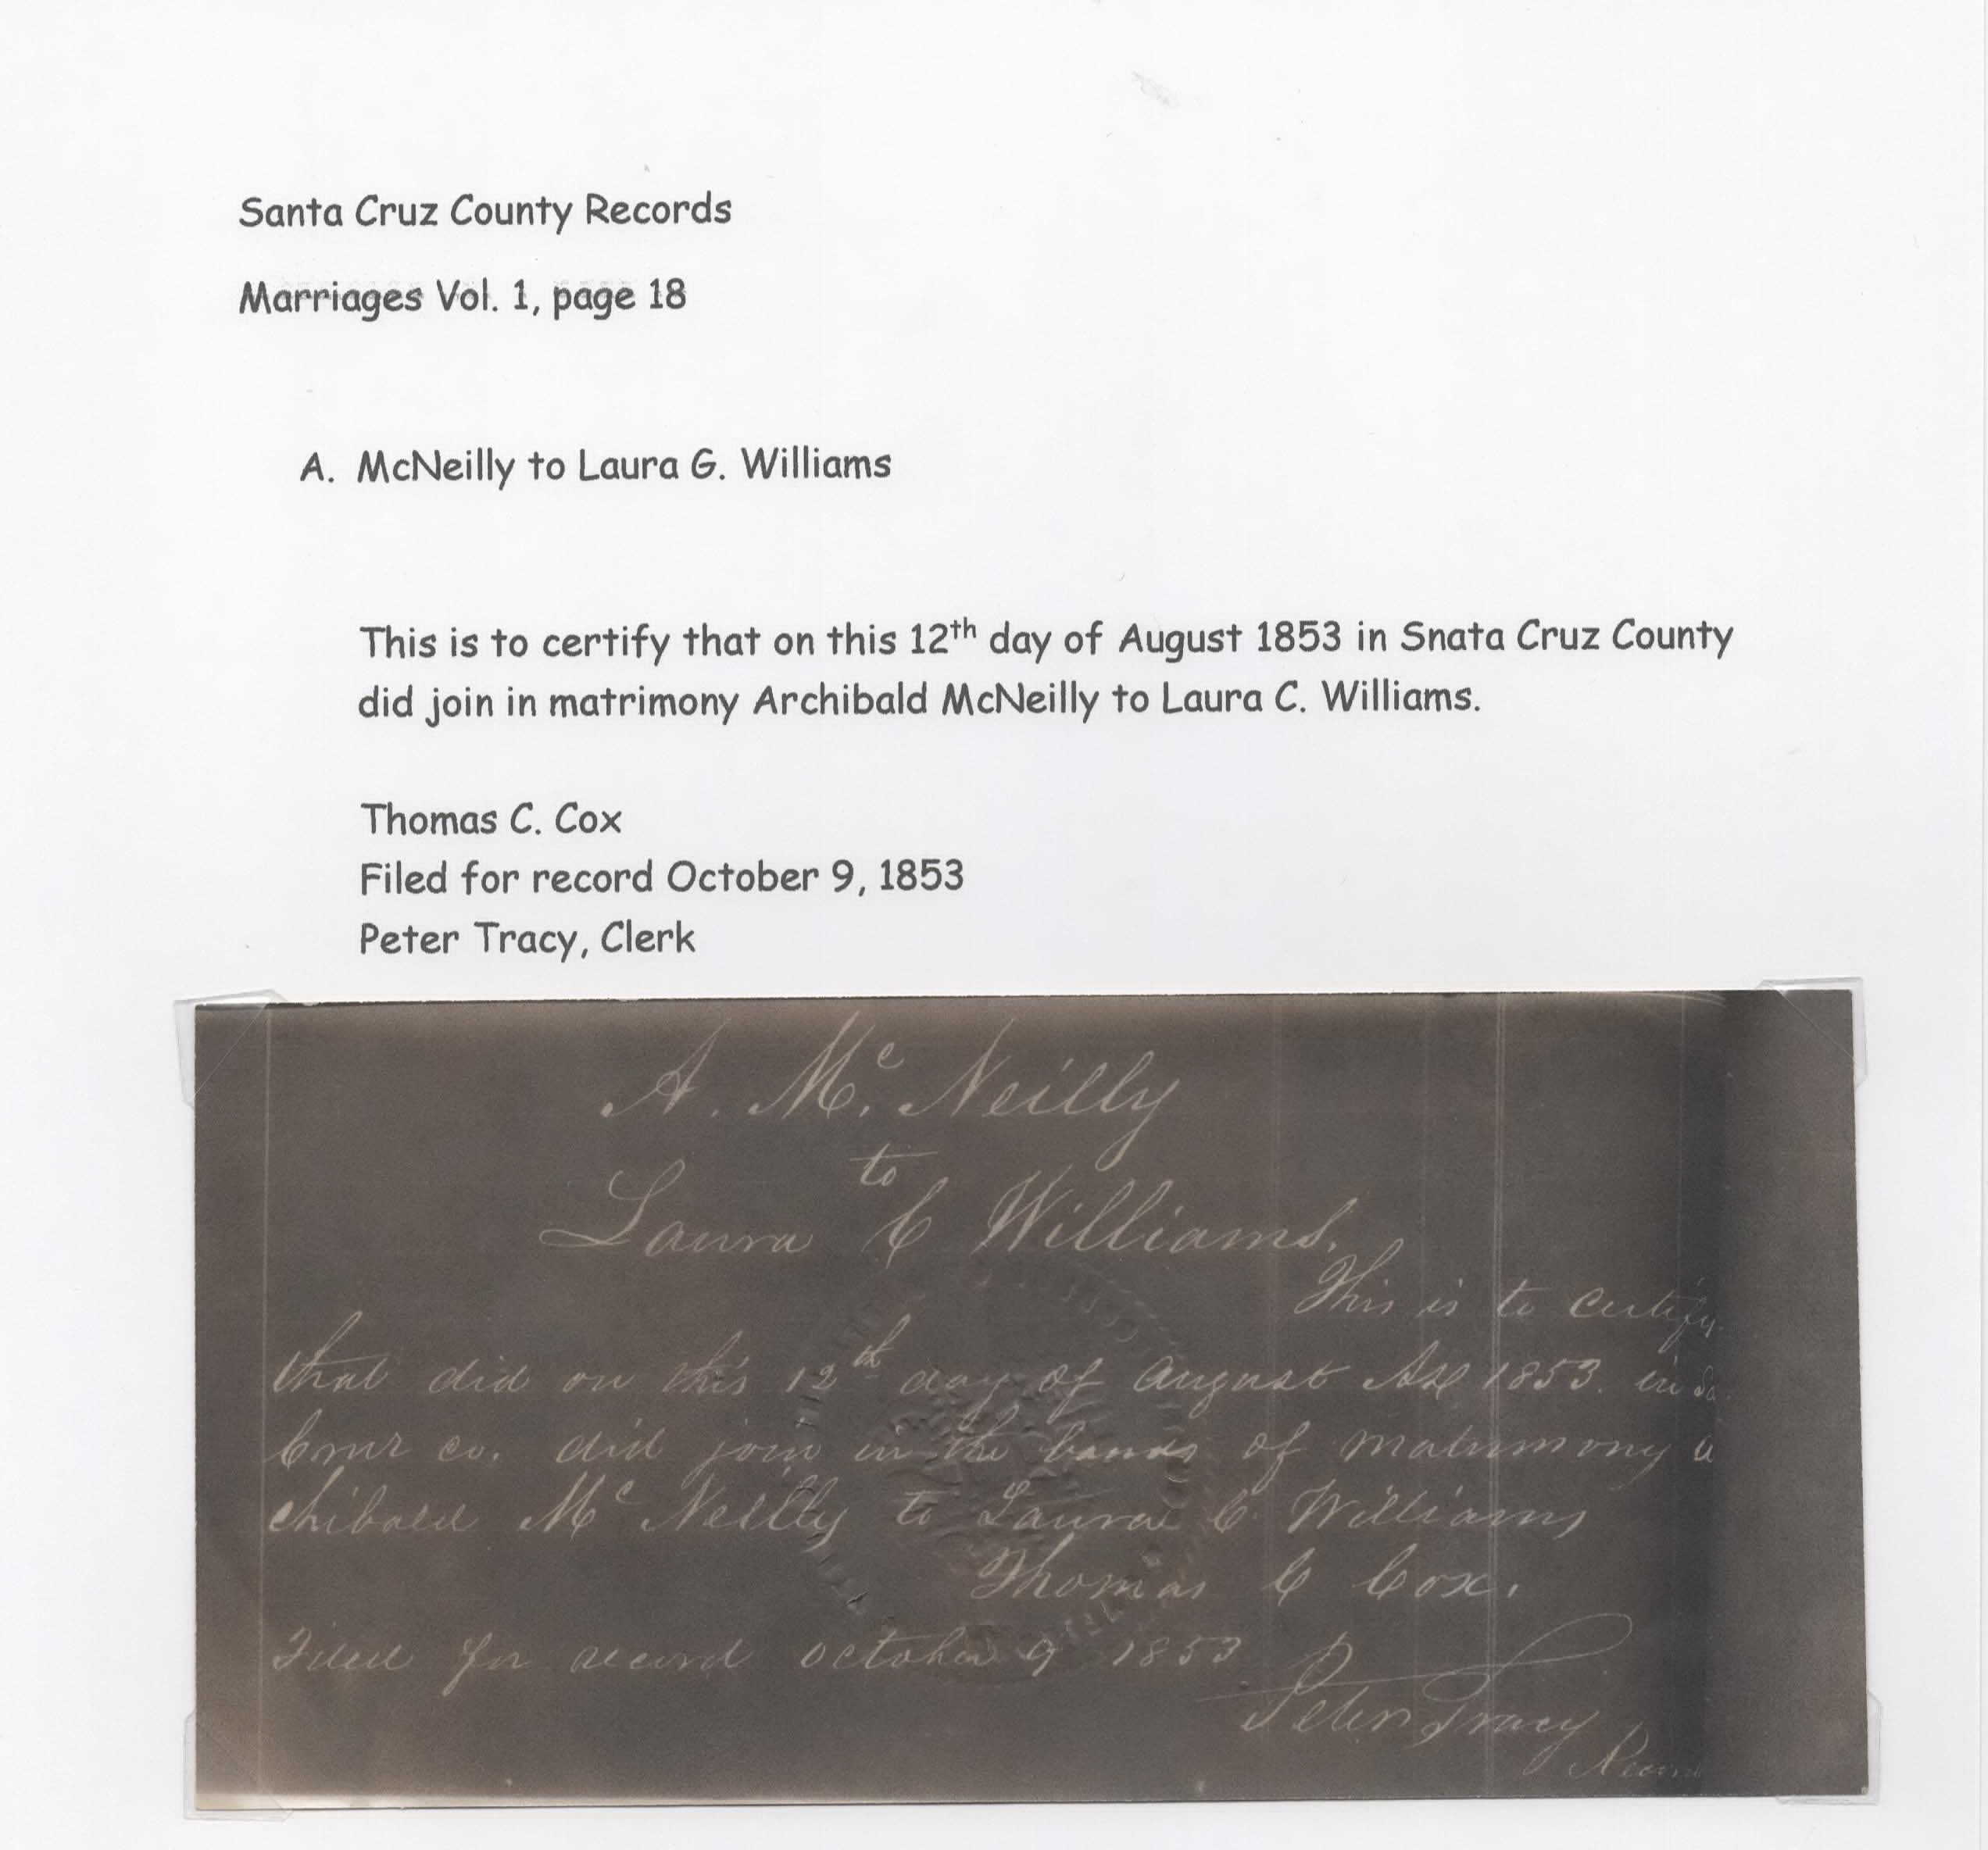 Santa Cruz County Records
Marriages Vol. 1, page 18
A. McNeilly to Laura G. Williams
This is to certify that on this 12th day of August 1853 in Snata Cruz County
did join in matrimony Archibald McNeilly to Laura C. Williams.
Thomas C. Cox
Filed for record October 9, 1853
Peter Tracy, Clerk
A. Mc. Neilly
to
Laura C Williams.
This is to certify
that did on this 12th day of August AD 1853. in
Cruz co. did join in the bands of matrimony
chibald Mc Neilly to Laura C. Williams
Thomas C Cox.
Filed for record October 9 1853
Peter Tracy